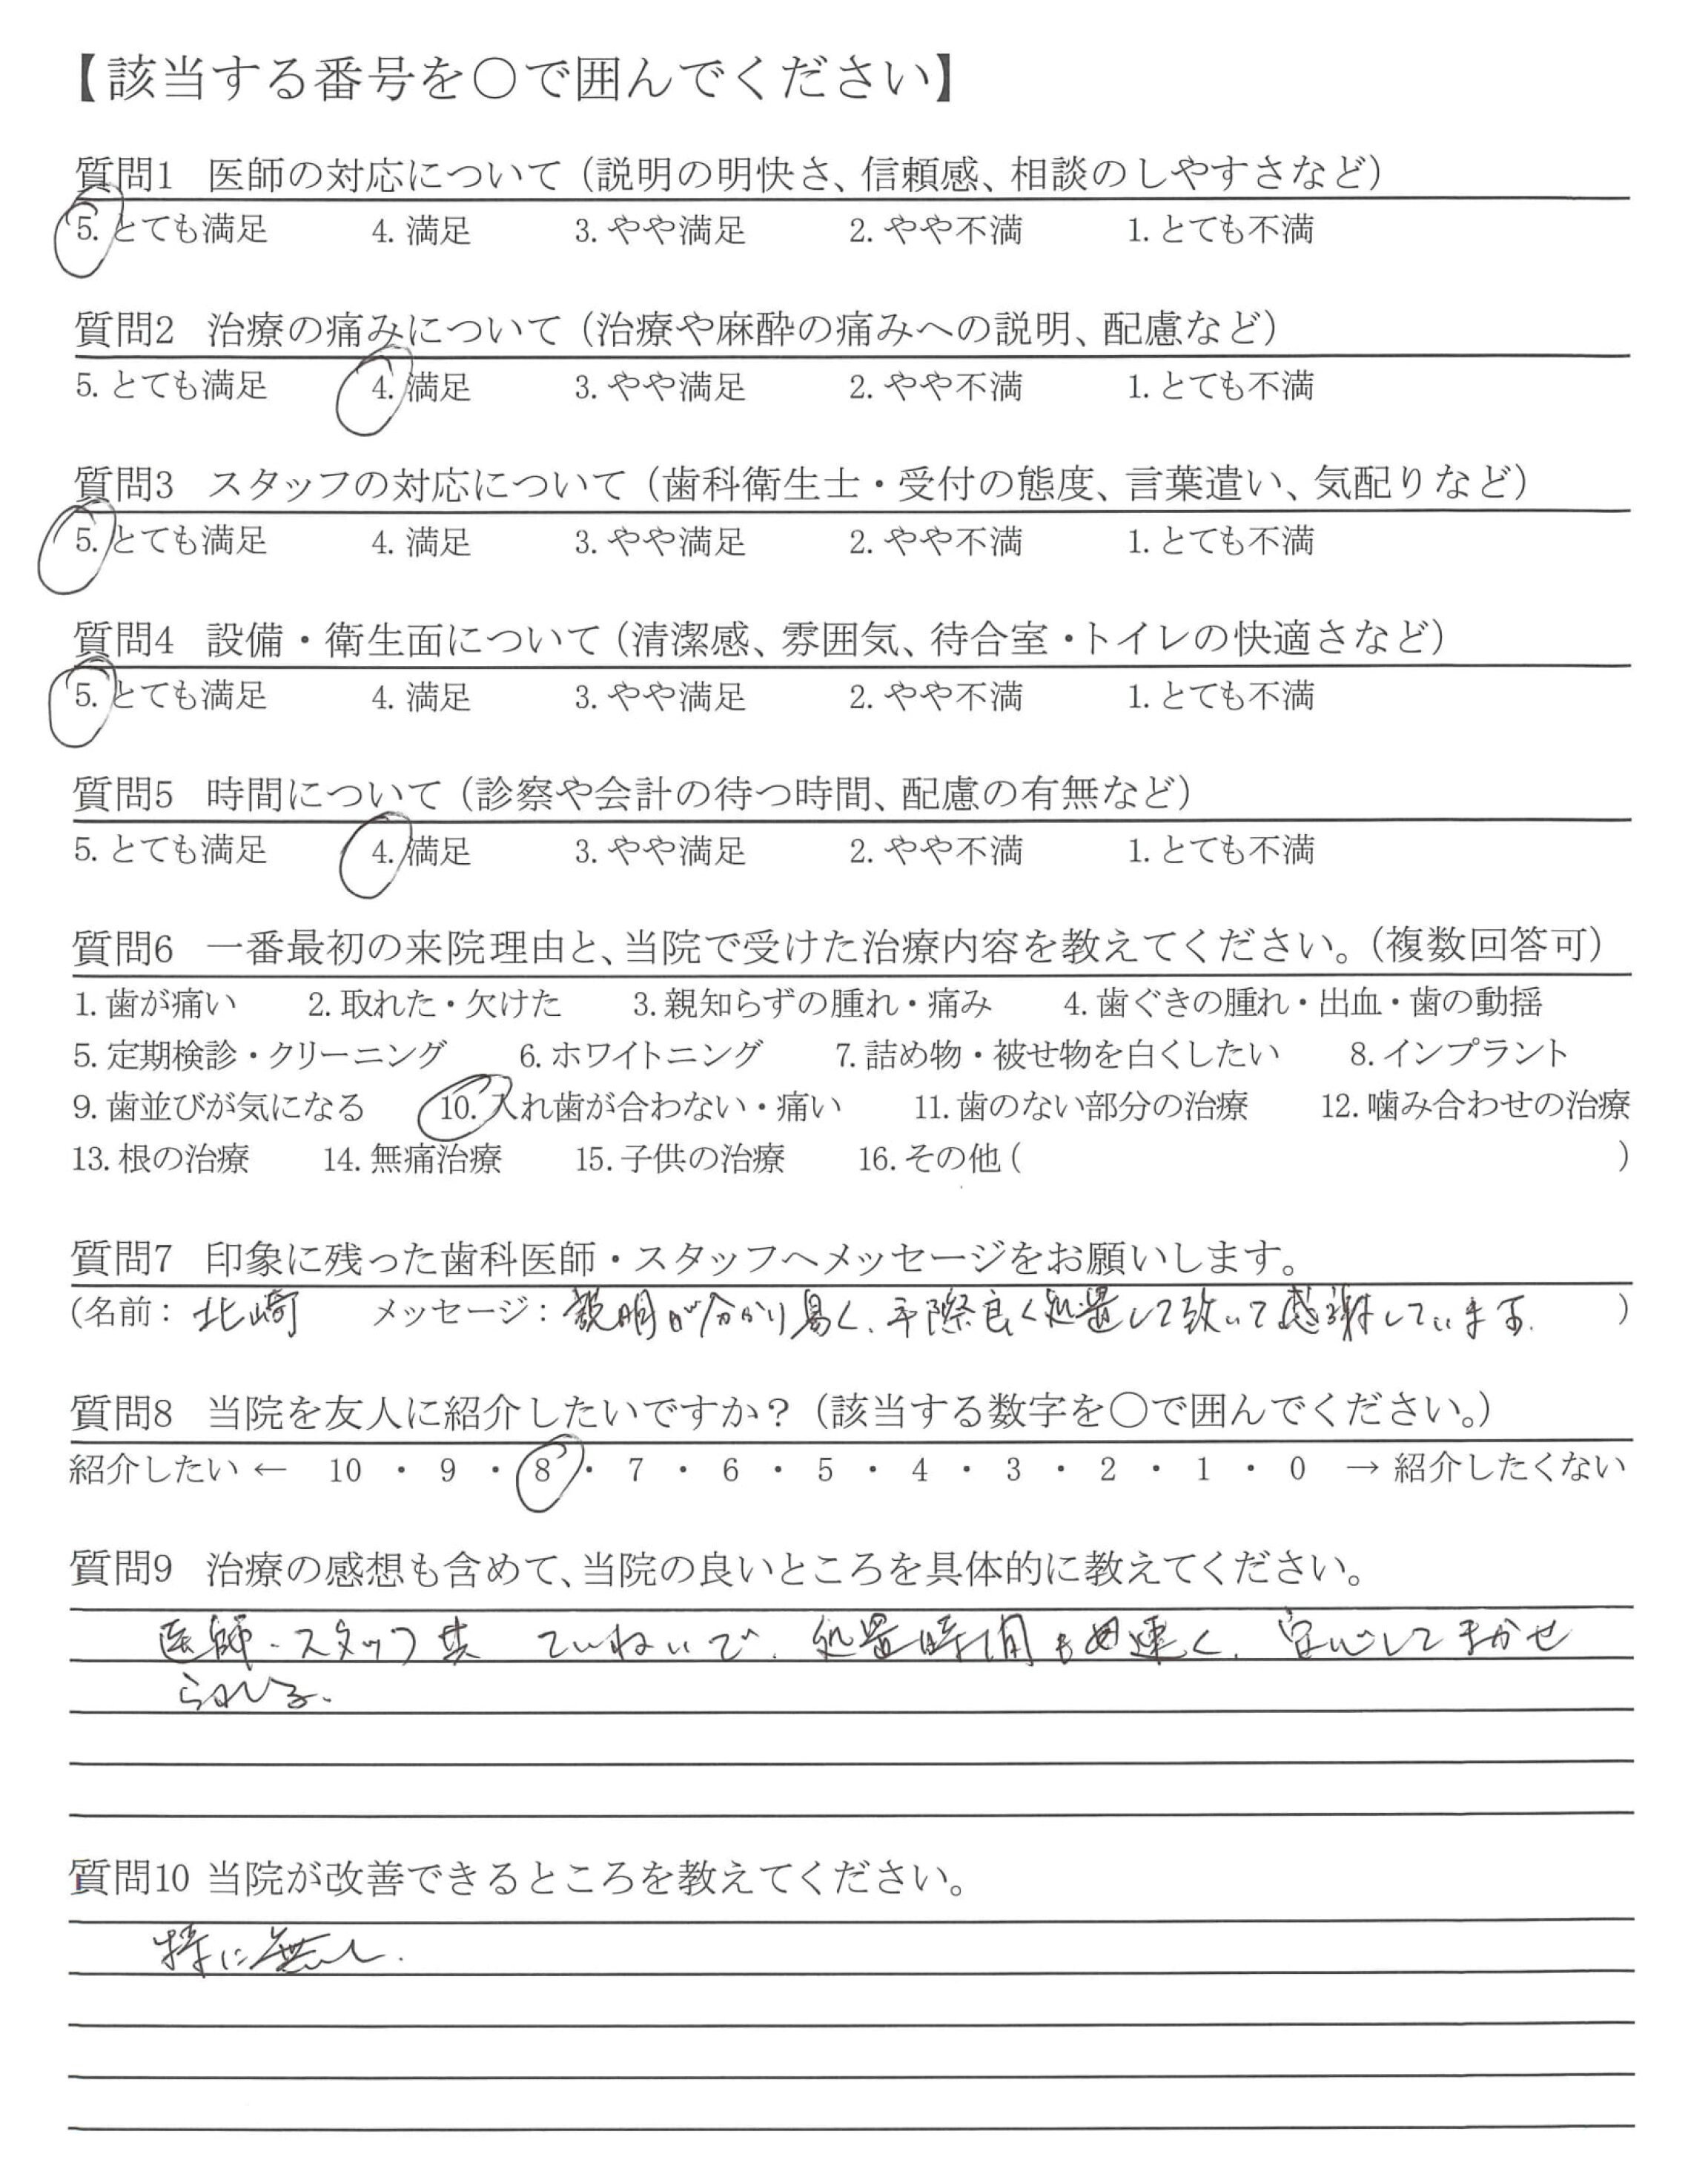 【該当する番号を○で囲んでください】
質問1 医師の対応について（説明の明快さ、信頼感、相談のしやすさなど）
5. とても満足 4. 満足 3. やや満足 2. やや不満 1. とても不満
質問2 治療の痛みについて（治療や麻酔の痛みへの説明、配慮など）
5. とても満足 4. 満足 3. やや満足 2. やや不満 1. とても不満
質問3 スタッフの対応について（歯科衛生士・受付の態度、言葉遣い、気配りなど）
5. とても満足 4. 満足 3. やや満足 2. やや不満 1. とても不満
質問4 設備・衛生面について（清潔感、雰囲気、待合室・トイレの快適さなど）
5. とても満足 4. 満足 3. やや満足 2. やや不満 1. とても不満
質問5 時間について（診察や会計の待つ時間、配慮の有無など）
5. とても満足 4. 満足 3. やや満足 2. やや不満 1. とても不満
質問6 一番最初の来院理由と、当院で受けた治療内容を教えてください。（複数回答可）
1. 歯が痛い 2. 取れた・欠けた 3. 親知らずの腫れ・痛み 4. 歯ぐきの腫れ・出血・歯の動揺
5. 定期検診・クリーニング 6. ホワイトニング 7. 詰め物・被せ物を白くしたい 8. インプラント
9. 歯並びが気になる 10. 入れ歯が合わない・痛い 11. 歯のない部分の治療 12. 噛み合わせの治療
13. 根の治療 14. 無痛治療 15. 子供の治療 16. その他（ ）
質問7 印象に残った歯科医師・スタッフへメッセージをお願いします。
（名前： 北崎 メッセージ： 説明が分かり易く、手際良く処置して致いて感謝しています. ）
質問8 当院を友人に紹介したいですか？（該当する数字を○で囲んでください。）
紹介したい ← 10 ・ 9 ・ 8 ・ 7 ・ 6 ・ 5 ・ 4 ・ 3 ・ 2 ・ 1 ・ 0 → 紹介したくない
質問9 治療の感想も含めて、当院の良いところを具体的に教えてください。
医師・スタッフ共 ていねいで、処置時間も 速く、安心してまかせ
られる.
質問10 当院が改善できるところを教えてください。
特に無し.